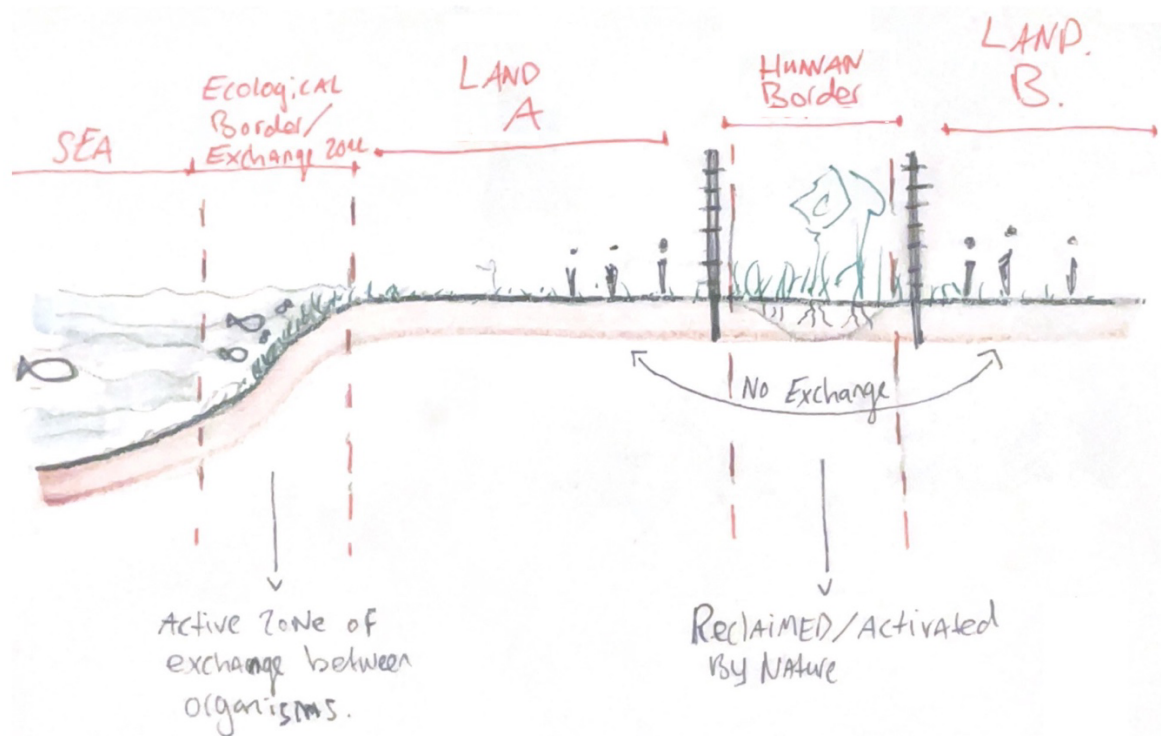 SEA
Ecological
Border/
Exchange zone
LAND
A
HUMAN
Border
LAND.
B.
No Exchange
Active zone of
exchange between
organisms.
Reclaimed/Activated
By Nature